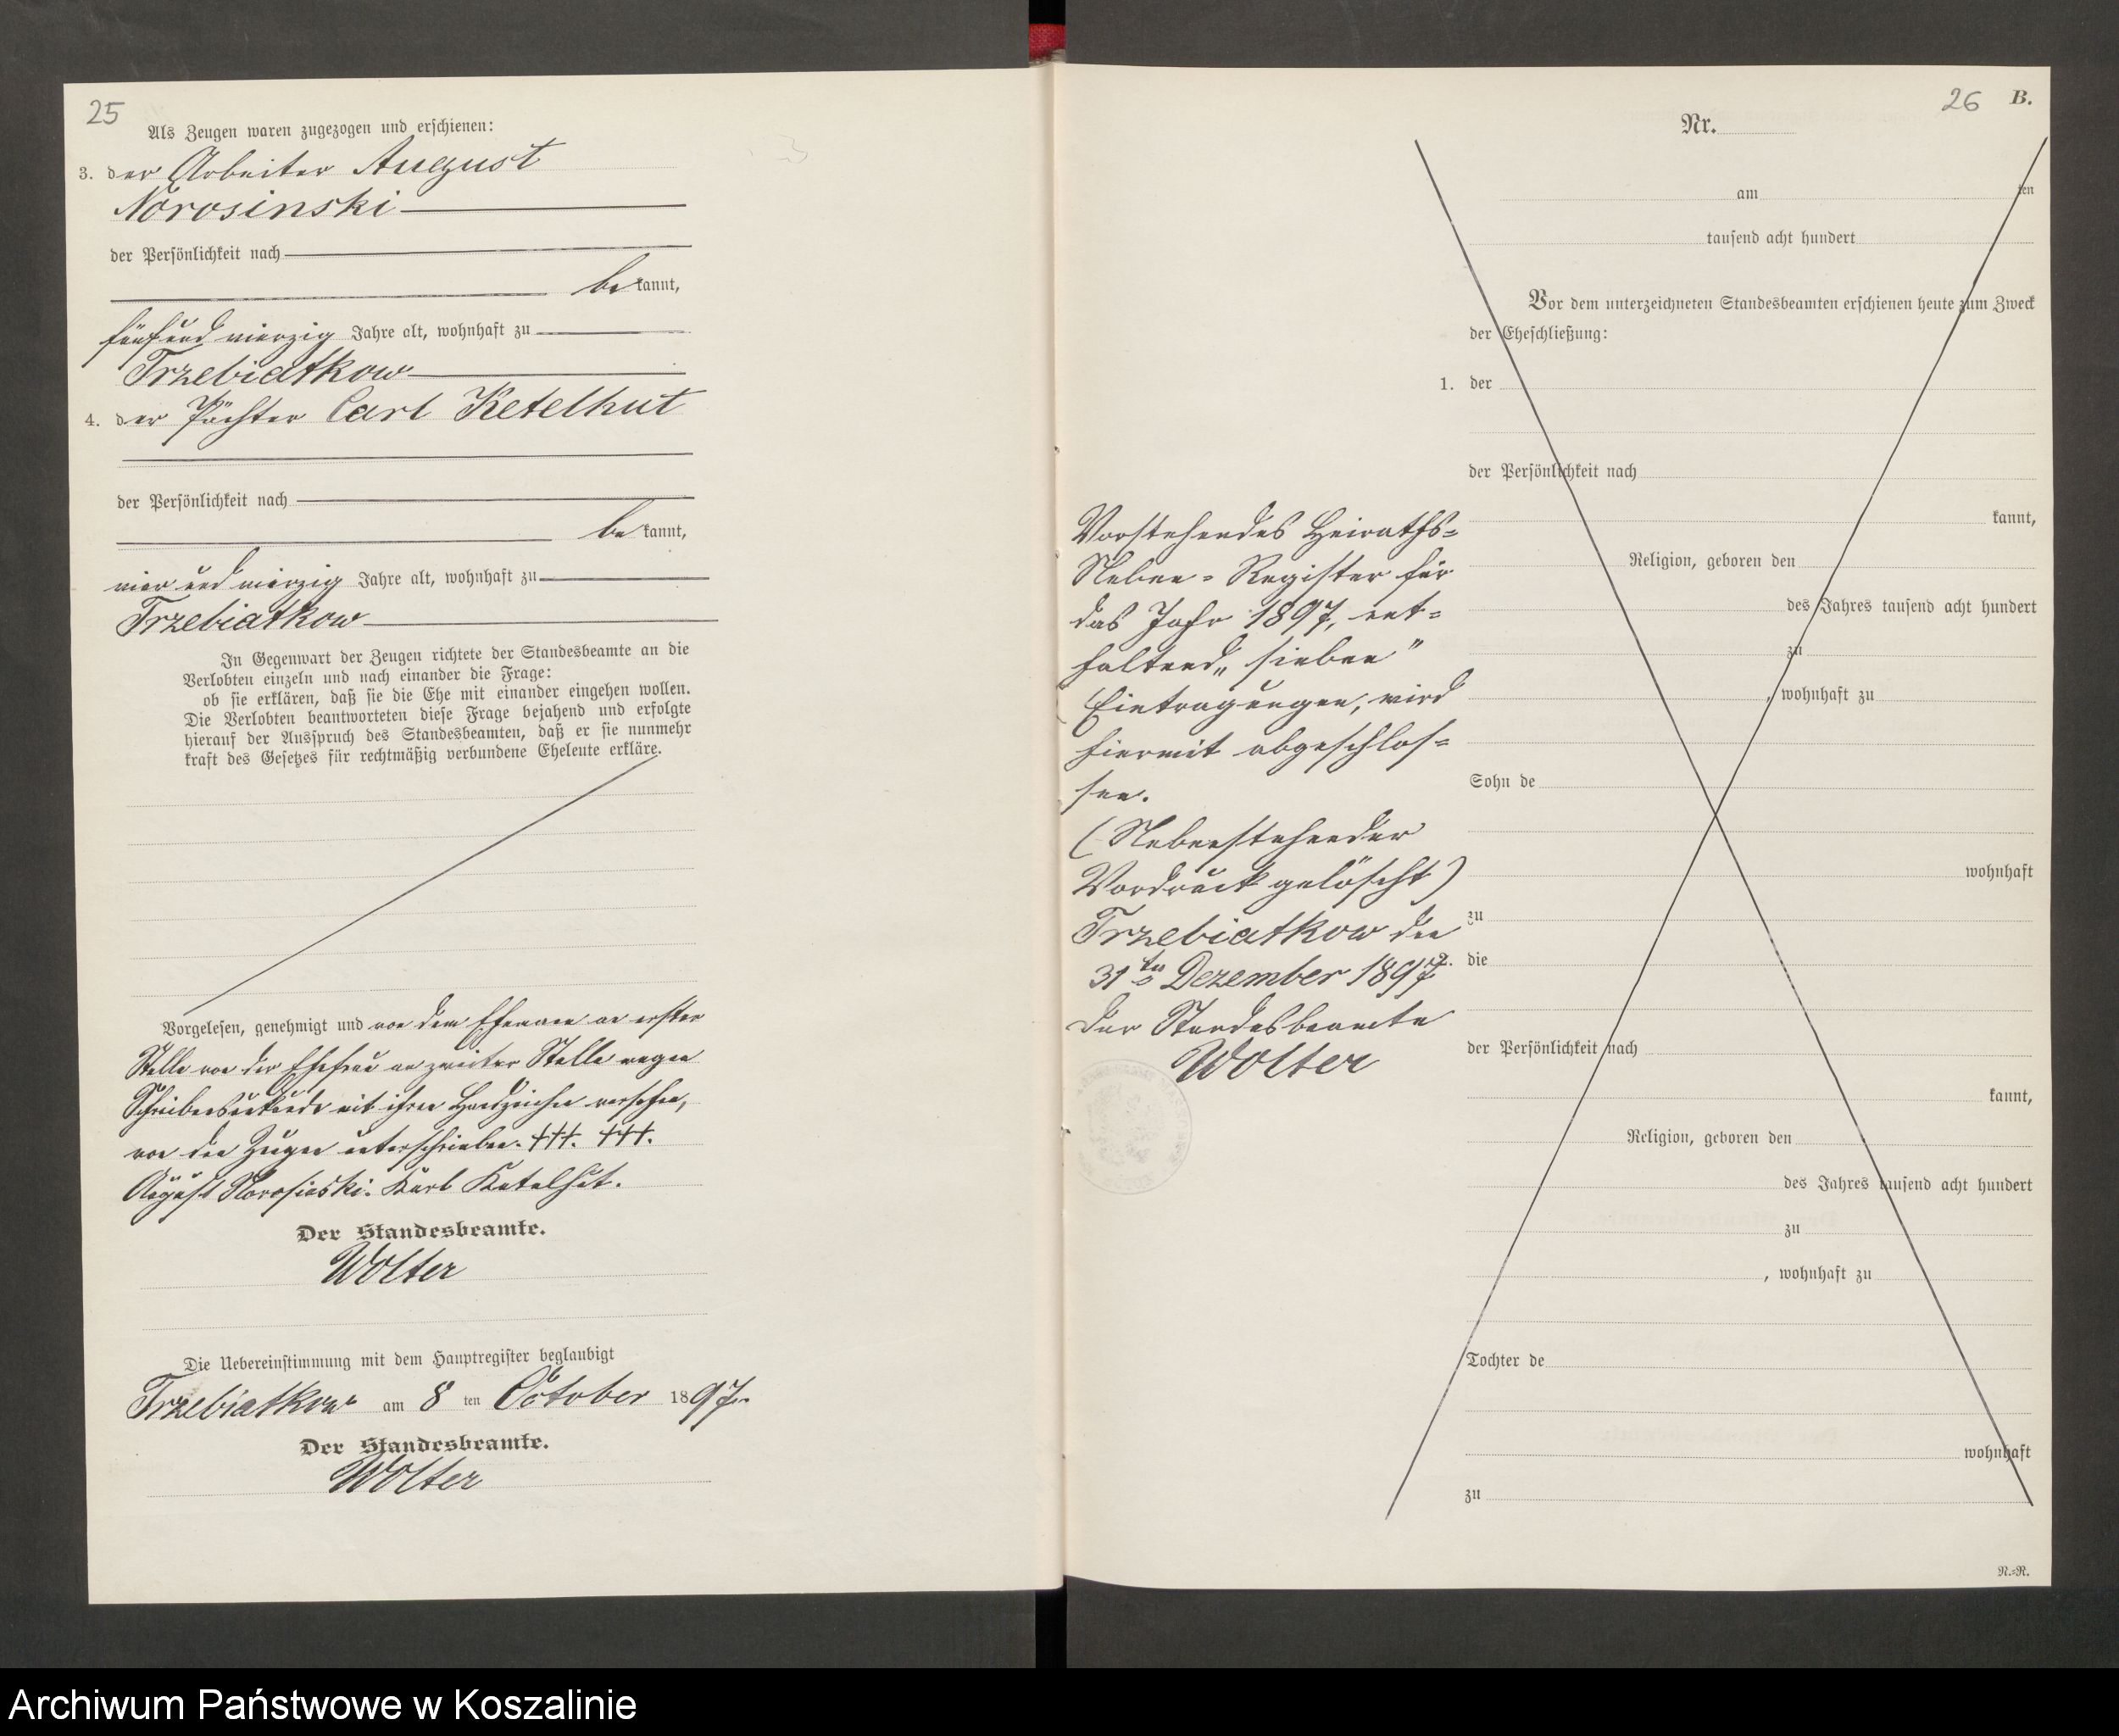 25
Als Zeugen waren zugezogen und erschienen:
3. der Arbeiter August
Norosinski
der Persönlichkeit nach
be kannt,
fünfund vierzig Jahre alt, wohnhaft zu
Trzebiatkow
4. der Pächter Carl Ketelhut
der Persönlichkeit nach
be kannt,
vier und vierzig Jahre alt, wohnhaft zu
Trzebiatkow
In Gegenwart der Zeugen richtete der Standesbeamte an die
Verlobten einzeln und nach einander die Frage:
ob sie erklären, daß sie die Ehe mit einander eingehen wollen.
Die Verlobten beantworteten diese Frage bejahend und erfolgte
hierauf der Ausspruch des Standesbeamten, daß er sie nunmehr
kraft des Gesetzes für rechtmäßig verbundene Eheleute erkläre.
Vorgelesen, genehmigt und von dem Ehemann an erster
Stelle von der Ehefrau an zweiter Stelle wegen
Schreibensunkunde mit ihren Handzeichen versehen,
von den Zeugen unterschrieben. +++. +++.
August Norosinski. Karl Ketelhut.
Der Standesbeamte.
Wolter
Die Uebereinstimmung mit dem Hauptregister beglaubigt
Trzebiatkow am 8 ten October 1897.
Der Standesbeamte.
Wolter
26 B.
Nr.
am ten
tausend acht hundert
Vor dem unterzeichneten Standesbeamten erschienen heute zum Zweck
der Eheschließung:
1. der
der Persönlichkeit nach
kannt,
Religion, geboren den
des Jahres tausend acht hundert
zu
, wohnhaft zu
Sohn de
wohnhaft
zu
2. die
der Persönlichkeit nach
kannt,
Religion, geboren den
des Jahres tausend acht hundert
zu
, wohnhaft zu
Tochter de
wohnhaft
zu
N.=R.
Vorstehendes Heiraths=
Neben=Register für
das Jahr 1897, ent=
haltend „sieben"
Eintragungen, wird
hiermit abgeschlos=
sen.
(Nebenstehender
Vordruck gelöscht)
Trzebiatkow den
31ten Dezember 1897
Der Standesbeamte
Wolter
Archiwum Państwowe w Koszalinie